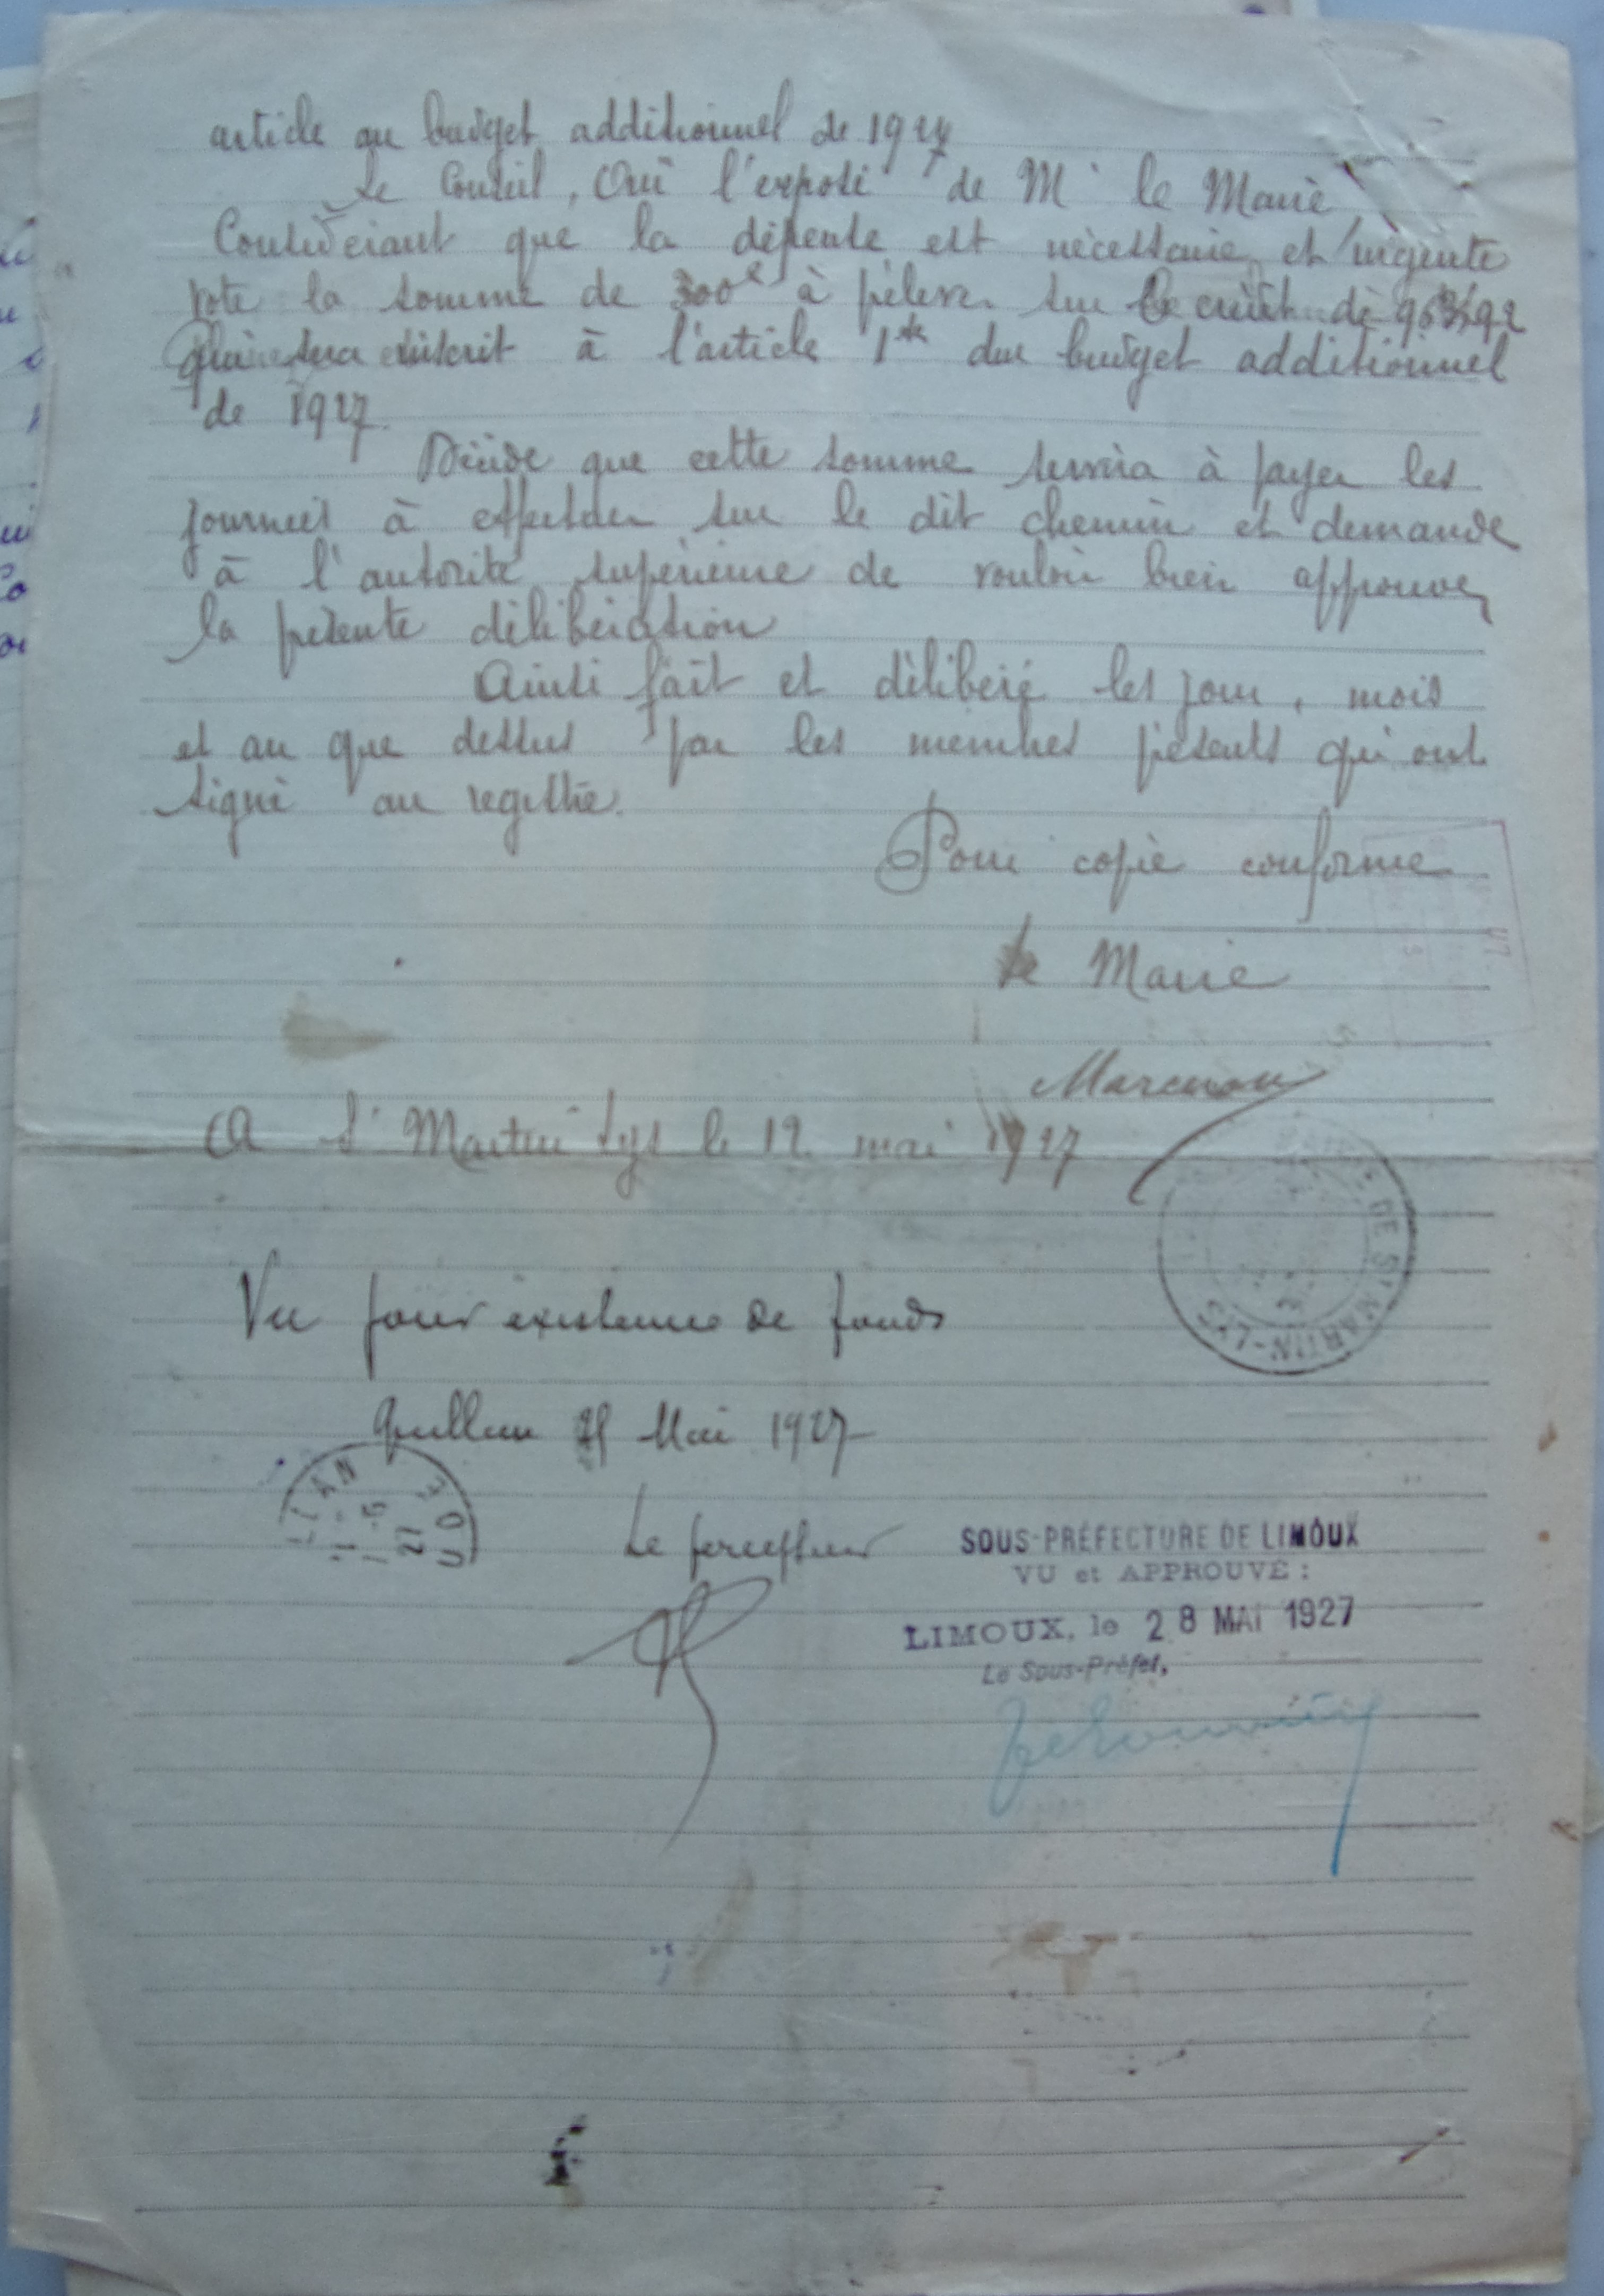 article au budget additionnel de 1927
Le Conseil, Oui l'exposé de Mr le Maire,
Considérant que la dépense est nécessaire et urgente
vote la somme de 300f à prélever sur le crédit de 963f92
qui sera inscrit à l'article 1er du budget additionnel
de 1927.
Décide que cette somme servira à payer les
journées à effectuer sur le dit chemin et demande
à l'autorité supérieure de vouloir bien approuver
la présente délibération
Ainsi fait et délibéré les jour, mois
et an que dessus par les membres présents qui ont
signé au registre.
Pour copie conforme
le Maire
A St Martin Lys le 12 mai 1927
DE ST MARTIN-LYS
Vu pour existence de fonds
Quillan Mai 1927
Le percepteur
SOUS-PRÉFECTURE DE LIMOUX
VU et APPROUVÉ :
LIMOUX, le 28 MAI 1927
Le Sous-Préfet,